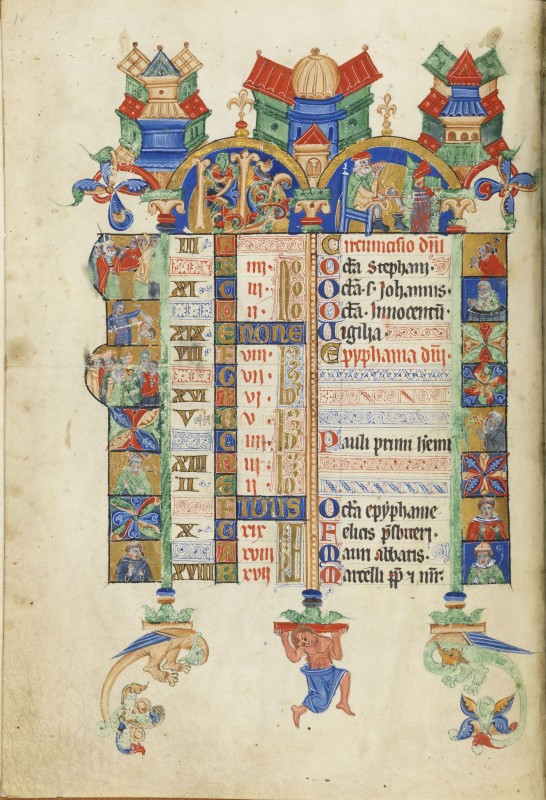 KL
III A Circumcisio dni
B iiij No Octa Stephani
XI C iij No Octa s. Johannis
D ij No Octa Innocentu
XIX E NONE Uigilia
VIII F viij Epyphania dni
G vij
XVI A vj
V B v
C iiij Pauli primi
XIII D iij
II E ij
F IDUS Octa epyphanie
X G xix Felicis prsbiteri
A xviij Mauri abbatis
XVIII B xvij Marcelli pp